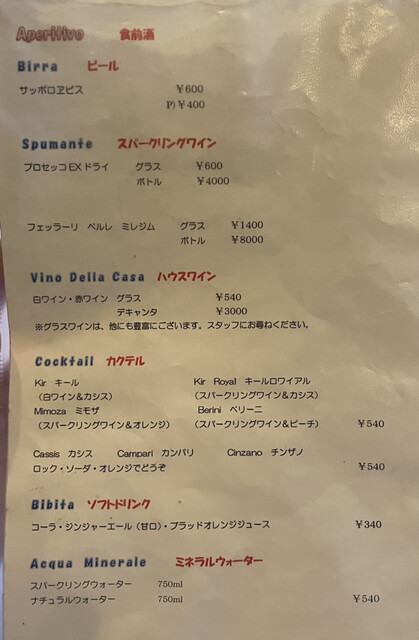 Aperitivo 食前酒
Birra ビール
サッポロヱビス ￥600
P)￥400
Spumante スパークリングワイン
プロセッコEXドライ グラス ￥600
ボトル ￥4000
フェッラーリ ペルレ ミレジム グラス ￥1400
ボトル ￥8000
Vino Della Casa ハウスワイン
白ワイン・赤ワイン グラス ￥540
デキャンタ ￥3000
※グラスワインは、他にも豊富にございます。スタッフにお尋ねください。
Cocktail カクテル
Kir キール Kir Royal キールロワイアル
（白ワイン＆カシス） （スパークリングワイン＆カシス）
Mimoza ミモザ Berini ベリーニ
（スパークリングワイン＆オレンジ） （スパークリングワイン＆ピーチ） ￥540
Cassis カシス Campari カンパリ Cinzano チンザノ
ロック・ソーダ・オレンジでどうぞ ￥540
Bibita ソフトドリンク
コーラ・ジンジャーエール（甘口）・ブラッドオレンジジュース ￥340
Acqua Minerale ミネラルウォーター
スパークリングウォーター 750ml
ナチュラルウォーター 750ml ￥540